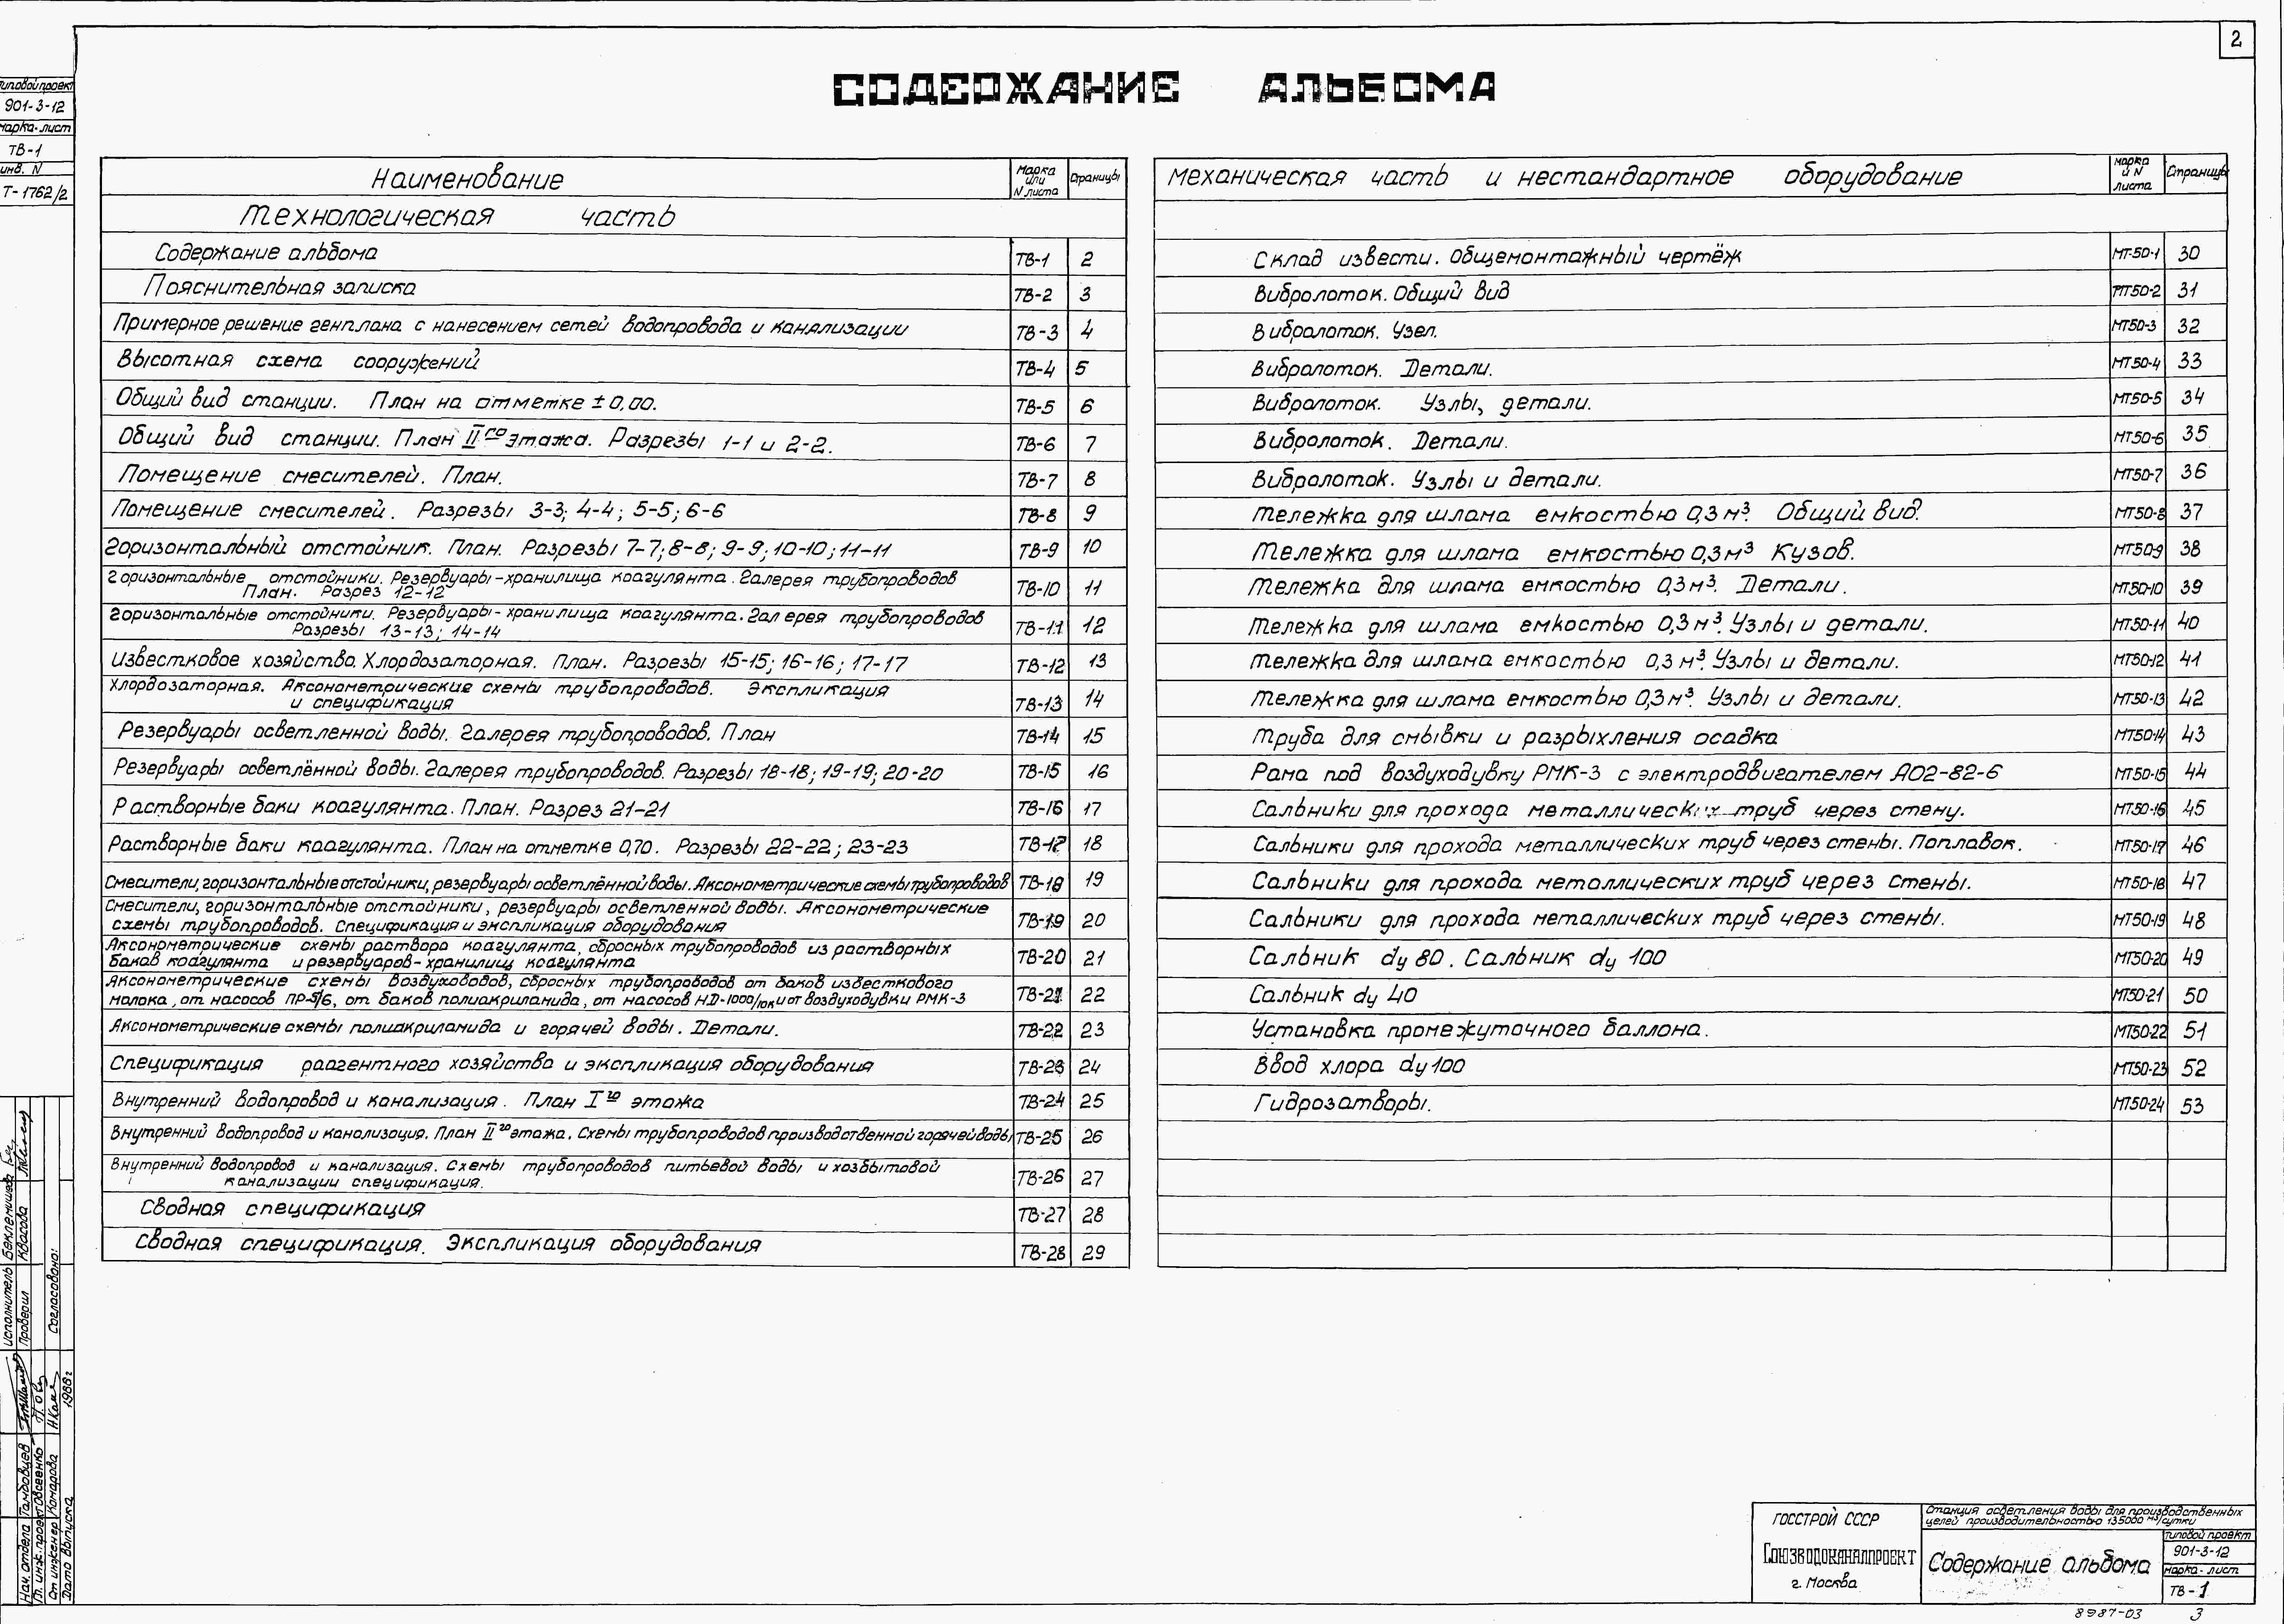 2
СОДЕРЖАНИЕ АЛЬБОМА
Типовой проект
901-3-12
марка-лист
ТВ-1
инв. N
Т-1762/2
Наименование | Марка или N листа | Страницы
Технологическая часть
Содержание альбома | ТВ-1 | 2
Пояснительная записка | ТВ-2 | 3
Примерное решение генплана с нанесением сетей водопровода и канализации | ТВ-3 | 4
Высотная схема сооружений | ТВ-4 | 5
Общий вид станции. План на отметке ±0,00. | ТВ-5 | 6
Общий вид станции. План IIго этажа. Разрезы 1-1 и 2-2. | ТВ-6 | 7
Помещение смесителей. План. | ТВ-7 | 8
Помещение смесителей. Разрезы 3-3; 4-4; 5-5; 6-6 | ТВ-8 | 9
Горизонтальный отстойник. План. Разрезы 7-7; 8-8; 9-9; 10-10; 11-11 | ТВ-9 | 10
Горизонтальные отстойники. Резервуары-хранилища коагулянта. Галерея трубопроводов
План. Разрез 12-12 | ТВ-10 | 11
Горизонтальные отстойники. Резервуары-хранилища коагулянта. Галерея трубопроводов
Разрезы 13-13; 14-14 | ТВ-11 | 12
Известковое хозяйство. Хлордозаторная. План. Разрезы 15-15; 16-16; 17-17 | ТВ-12 | 13
Хлордозаторная. Аксонометрические схемы трубопроводов. Экспликация
и спецификация | ТВ-13 | 14
Резервуары осветленной воды. Галерея трубопроводов. План | ТВ-14 | 15
Резервуары осветлённой воды. Галерея трубопроводов. Разрезы 18-18; 19-19; 20-20 | ТВ-15 | 16
Растворные баки коагулянта. План. Разрез 21-21 | ТВ-16 | 17
Растворные баки коагулянта. План на отметке 0,70. Разрезы 22-22; 23-23 | ТВ-17 | 18
Смесители, горизонтальные отстойники, резервуары осветлённой воды. Аксонометрические схемы трубопроводов | ТВ-18 | 19
Смесители, горизонтальные отстойники, резервуары осветленной воды. Аксонометрические
схемы трубопроводов. Спецификация и экспликация оборудования | ТВ-19 | 20
Аксонометрические схемы раствора коагулянта, сбросных трубопроводов из растворных
баков коагулянта и резервуаров-хранилищ коагулянта | ТВ-20 | 21
Аксонометрические схемы воздуховодов, сбросных трубопроводов от баков известкового
молока, от насосов ПР-5/6, от баков полиакриламида, от насосов НД-1000/10К и от воздуходувки РМК-3 | ТВ-21 | 22
Аксонометрические схемы полиакриламида и горячей воды. Детали. | ТВ-22 | 23
Спецификация раагентного хозяйства и экспликация оборудования | ТВ-23 | 24
Внутренний водопровод и канализация. План Iго этажа | ТВ-24 | 25
Внутренний водопровод и канализация. План IIго этажа. Схемы трубопроводов производственной горячей воды | ТВ-25 | 26
Внутренний водопровод и канализация. Схемы трубопроводов питьевой воды и хозбытовой
канализации спецификация. | ТВ-26 | 27
Сводная спецификация | ТВ-27 | 28
Сводная спецификация. Экспликация оборудования | ТВ-28 | 29
Механическая часть и нестандартное оборудование | марка и N листа | Страницы
Склад извести. Общемонтажный чертёж | МТ-50-1 | 30
Вибролоток. Общий вид | МТ50-2 | 31
Вибролоток. Узел. | МТ50-3 | 32
Вибролоток. Детали. | МТ50-4 | 33
Вибролоток. Узлы, детали. | МТ50-5 | 34
Вибролоток. Детали. | МТ50-6 | 35
Вибролоток. Узлы и детали. | МТ50-7 | 36
Тележка для шлама емкостью 0,3 м³. Общий вид. | МТ50-8 | 37
Тележка для шлама емкостью 0,3 м³ Кузов. | МТ50-9 | 38
Тележка для шлама емкостью 0,3 м³. Детали. | МТ50-10 | 39
Тележка для шлама емкостью 0,3 м³. Узлы и детали. | МТ50-11 | 40
Тележка для шлама емкостью 0,3 м³. Узлы и детали. | МТ50-12 | 41
Тележка для шлама емкостью 0,3 м³. Узлы и детали. | МТ50-13 | 42
Труба для смывки и разрыхления осадка | МТ50-14 | 43
Рама под воздуходувку РМК-3 с электродвигателем АО2-82-6 | МТ50-15 | 44
Сальники для прохода металлических труб через стену. | МТ50-16 | 45
Сальники для прохода металлических труб через стены. Поплавок. | МТ50-17 | 46
Сальники для прохода металлических труб через стены. | МТ50-18 | 47
Сальники для прохода металлических труб через стены. | МТ50-19 | 48
Сальник dу 80. Сальник dу 100 | МТ50-20 | 49
Сальник dу 40 | МТ50-21 | 50
Установка промежуточного баллона. | МТ50-22 | 51
Ввод хлора dу 100 | МТ50-23 | 52
Гидрозатворы. | МТ50-24 | 53
Исполнитель Беклемишева
Проверил Квасова
Согласовано:
Нач. отдела Тамбовцев
Гл. инж. проект Овсеенко
Ст инженер Комарова
Дата выпуска 1968г
ГОССТРОЙ СССР
СОЮЗВОДОКАНАЛПРОЕКТ
г. Москва
Станция осветления воды для производственных
целей производительностью 135000 м³/сутки
Содержание альбома
типовой проект
901-3-12
марка-лист
ТВ-1
8987-03 3